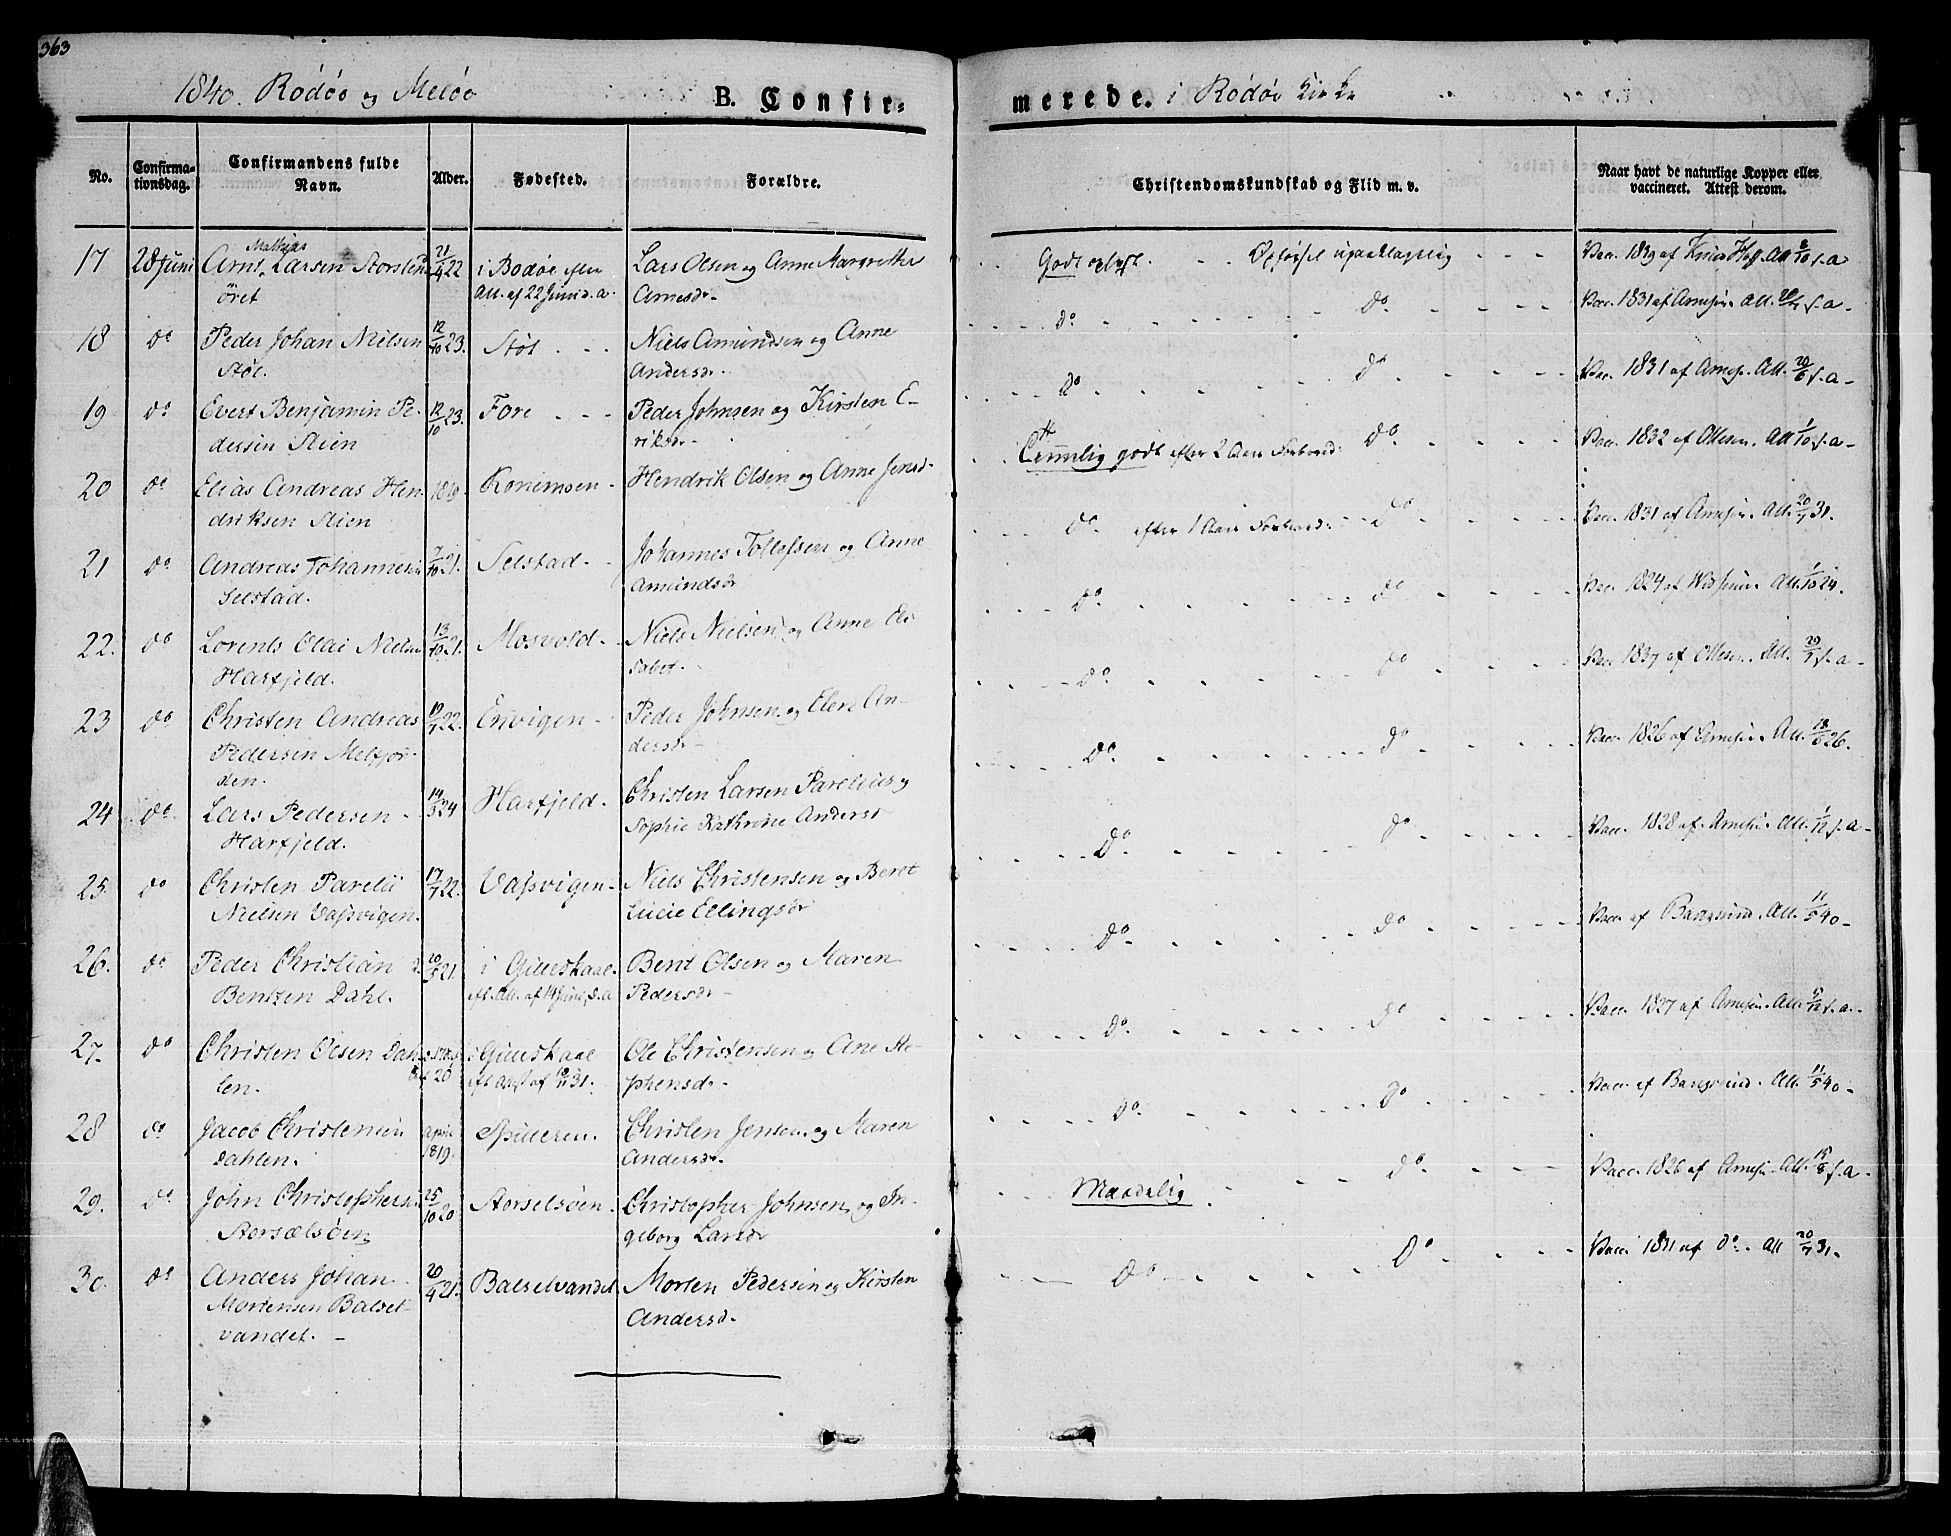 363
1840. Rødøe og Meløe B. Confir= merede. i Rødøe Kirke
No. Confirma-tionsdag. Confirmandens fulde Navn. Alder. Fødested. Forældre. Christendomskundskab og Flid m. v. Naar havt de naturlige Kopper eller vaccineret. Attest derom.
17 28 Juni Arnt Mathias Larsen Storsten 21/4 22 i Bodøe efter Lars Olsen og Anne Margrethe Godt oplyst. Opførsel upaaklagelig
øret Att. af 22 Juni d. a. Arnesdr.
18 do Peder Johan Nielsen 12/10 23. Støt Niels Amundsen og Anne do do Vac. 1831 af Arnesen. Att.
Støt. Andersdr.
19 do Evert Benjamin Pe- 12/10 23. Fore Peder Johnsen og Kirsten E- do do Vac. 1831 af Arnes. Att. 20/6 s. a.
dersen Stien riksdr.
20 do Elias Andreas Hen- 1819. Konemoen Hendrik Olsen og Anne Jensd. Temmelig godt efter 2 Aars do Vac. 1832 af Ottesen. Att. 1/10 s. a.
driksen Stien
21 do Andreas Johannesen 7/10 21. Selstad Johannes Tollefsen og Anne do efter 1 Aars do Vac. 1831 af Arnesen. Att. 20/7 31.
Selstad. Amundsdr
22. do Lorents Olai Nielsen 13/10 21. Mosvold Niels Nielsen og Anne Eli do do Vac. 1824 af Att. 1/10 24.
Harfjeld. sabet.
23 do Christen Andreas 19/7 22. Envigen Peder Johnsen og Elen An- do do Vac. 1837 af Ottesen. Att. 29/7 s. a.
Pedersen Melfjor- dersdr
den.
24 do Lars Pedersen 14/3 24 Harfjeld. Christen Larsen Parelius og do do Vac. 1826 af Arnesen. Att. 13/6 26.
Harfjeld. Sophie Kathrine Andersd
25. do Christen Parelii 17/7 22. Vassvigen Niels Christensen og Beret do do Vac. 1828 af Arnesen. Att. 1/12 s. a.
Nielsen Vassvigen. Lucie Ellingsdr
26. do Peder Christian 10/5 21. i Gilleskaal Bent Olsen og Maren do do Vac. af Bangsund. Att. 11/5 40
Bentzen Dahl. eft. Att. af 14 Juni d. a Pedersdr
27. do Christen Olsen Dah- 20 i Gilleskaal Ole Christensen og Ane Ste- do do Vac. 1827 af Arnesen. Att. s. a.
len. eft. Att. af 31. phensdr.
28 do Jacob Christensen April Spilleren. Christen Jensen og Maren do do Vac. af Bangsund. Att. 11/5 40
Dahlen. 1819. Andersdr.
29. do John Christophersen 25/10 20 Storselsøen Christopher Johnsen og In- Maadelig do Vacc. 1826 af Arnesen. Att. 15/8 s. a
Storsælsøen geborg Larsdr
30. do Anders Johan 20/4 21. Balselvandet Morten Pedersen og Kirsten do do Vacc. 1831 af do. Att 20/7 31.
Mortensen Balsel- Andersd.
vandet.